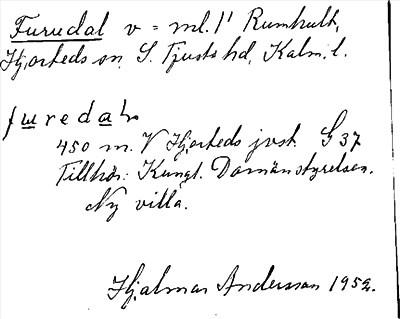 Furudal v = ml. 1' Rumhult,
Hjorteds sn. S. Tjusts hd, Kalm. l.
furedal
450 m. V Hjorteds jvst. G 37
Tillhör: Kungl. Domänstyrelsen.
Ny villa.
Hjalmar Andersson 1952.